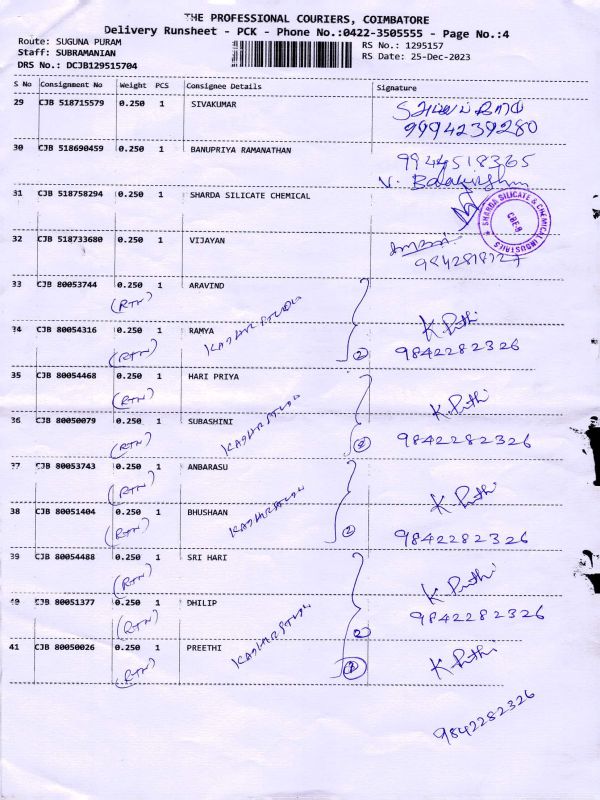 THE PROFESSIONAL COURIERS, COIMBATORE
Delivery Runsheet - PCK - Phone No.:0422-3505555 - Page No.:4
Route: SUGUNA PURAM
Staff: SUBRAMANIAN
DRS No.: DCJB129515704
RS No.: 1295157
RS Date: 25-Dec-2023
S No Consignment No Weight PCS Consignee Details Signature
29 CJB 518715579 0.250 1 SIVAKUMAR
9994239280
30 CJB 518690459 0.250 1 BANUPRIYA RAMANATHAN 9944518365
31 CJB 518758294 0.250 1 SHARDA SILICATE CHEMICAL
SHARDA SILICATE & CHEMICAL INDUSTRIES
CBE-8
32 CJB 518733680 0.250 1 VIJAYAN
9842818727
33 CJB 80053744 0.250 1 ARAVIND
(RTN)
34 CJB 80054316 0.250 1 RAMYA
(RTN) 2 9842282326
35 CJB 80054468 0.250 1 HARI PRIYA
(RTN)
36 CJB 80050079 0.250 1 SUBASHINI
(RTN) 2 9842282326
37 CJB 80053743 0.250 1 ANBARASU
(RTN)
38 CJB 80051404 0.250 1 BHUSHAAN
(RTN) 2 9842282326
39 CJB 80054488 0.250 1 SRI HARI
(RTN)
40 CJB 80051377 0.250 1 DHILIP 9842282326
(RTN) 2
41 CJB 80050026 0.250 1 PREETHI
(RTN)
9842282326